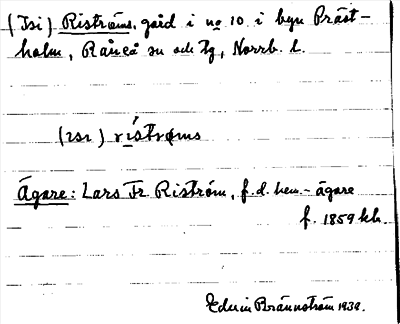 (Isi) Riströms, gård i no 10 i byn Präst-
holm, Råneå sn och tg, Norrb. l.
(ısı) rı́strøms
Ägare: Lars Fr. Riström, f.d. hem.-ägare
f. 1859 kh.
Edvin Brännström 1939.